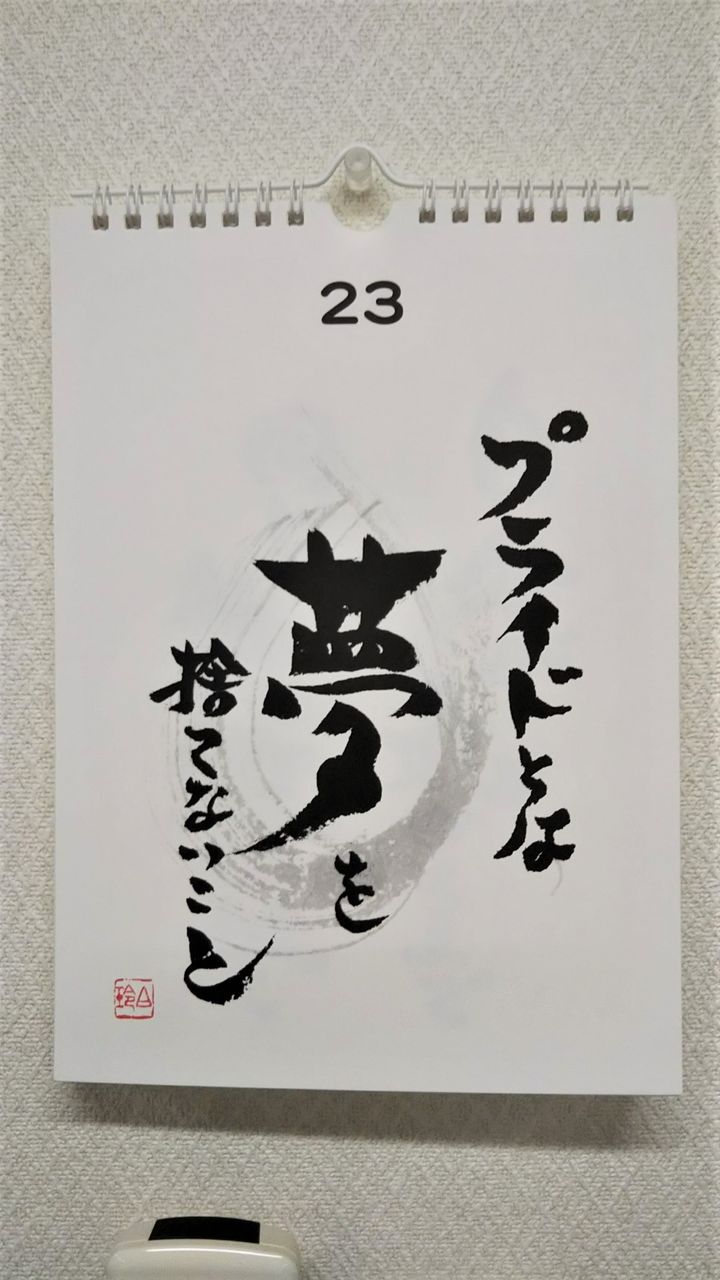 23
プライドとは
夢を
捨てないこと